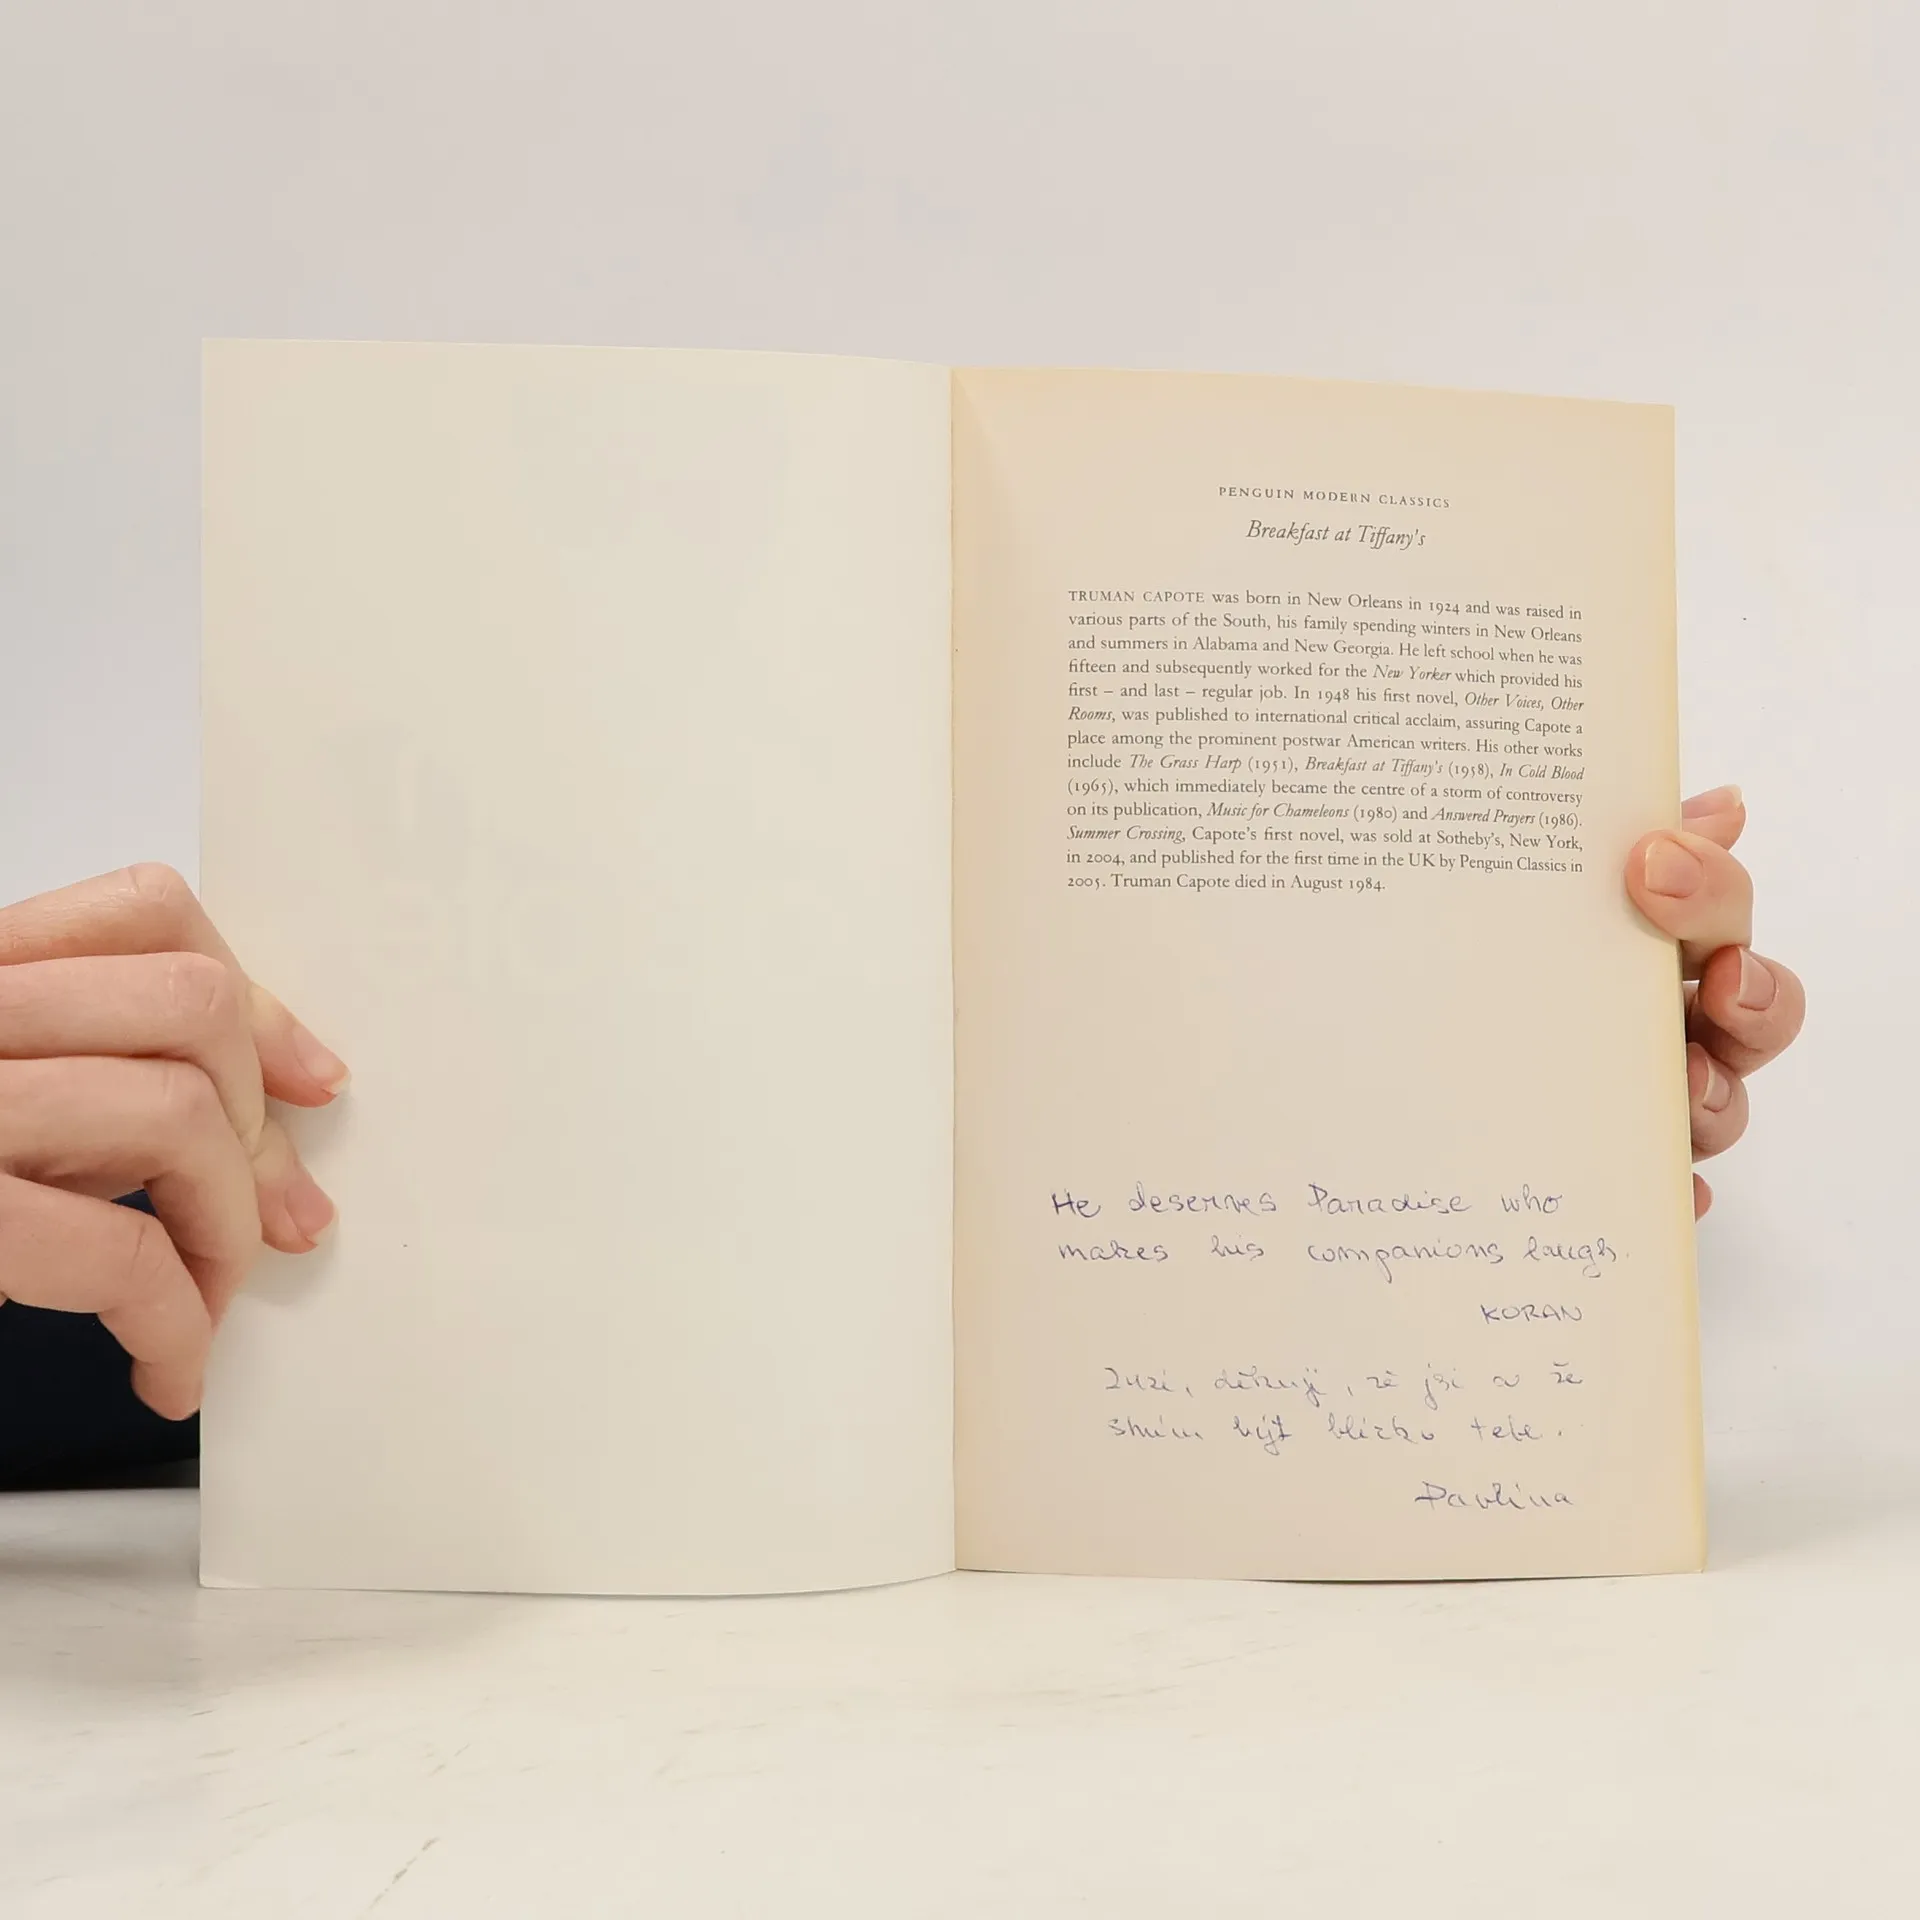 PENGUIN MODERN CLASSICS
Breakfast at Tiffany's
TRUMAN CAPOTE was born in New Orleans in 1924 and was raised in
various parts of the South, his family spending winters in New Orleans
and summers in Alabama and New Georgia. He left school when he was
fifteen and subsequently worked for the New Yorker which provided his
first – and last – regular job. In 1948 his first novel, Other Voices, Other
Rooms, was published to international critical acclaim, assuring Capote a
place among the prominent postwar American writers. His other works
include The Grass Harp (1951), Breakfast at Tiffany's (1958), In Cold Blood
(1965), which immediately became the centre of a storm of controversy
on its publication, Music for Chameleons (1980) and Answered Prayers (1986).
Summer Crossing, Capote's first novel, was sold at Sotheby's, New York,
in 2004, and published for the first time in the UK by Penguin Classics in
2005. Truman Capote died in August 1984.
He deserves Paradise who
makes his companions laugh.
KORAN
Zuzi, děkuji, že jsi a že
smím být blízko tebe.
Pavlína